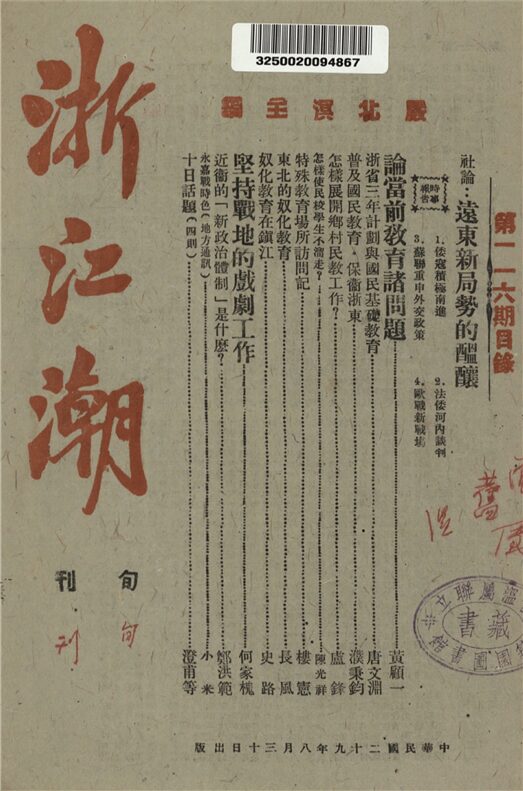 3250020094867
嚴北溟主編
浙江潮
旬刊
旬刊
第一一六期目錄
社論：遠東新局勢的醞釀
時事報告
1.倭寇積極南進
2.法倭河內談判
3.蘇聯重申外交政策
4.歐戰新戰場
論當前教育諸問題 黃顧一
浙省三年計劃與國民基礎教育 唐文淵
普及國民教育·保衞浙東 濮秉鈞
怎樣展開鄉村民教工作？ 盧鋒
怎樣使民校學生不溜走？ 陳光祥
特殊教育場所訪問記 樓憲
東北的奴化教育 長風
奴化教育在鎮江 史路
堅持戰地的戲劇工作 何家槐
近衞的「新政治體制」是什麽？ 鄭洪範
永嘉戰時色（地方通訊） 小米
十日話題（四則） 澄甫等
中華民國二十九年八月三十日出版
藏書